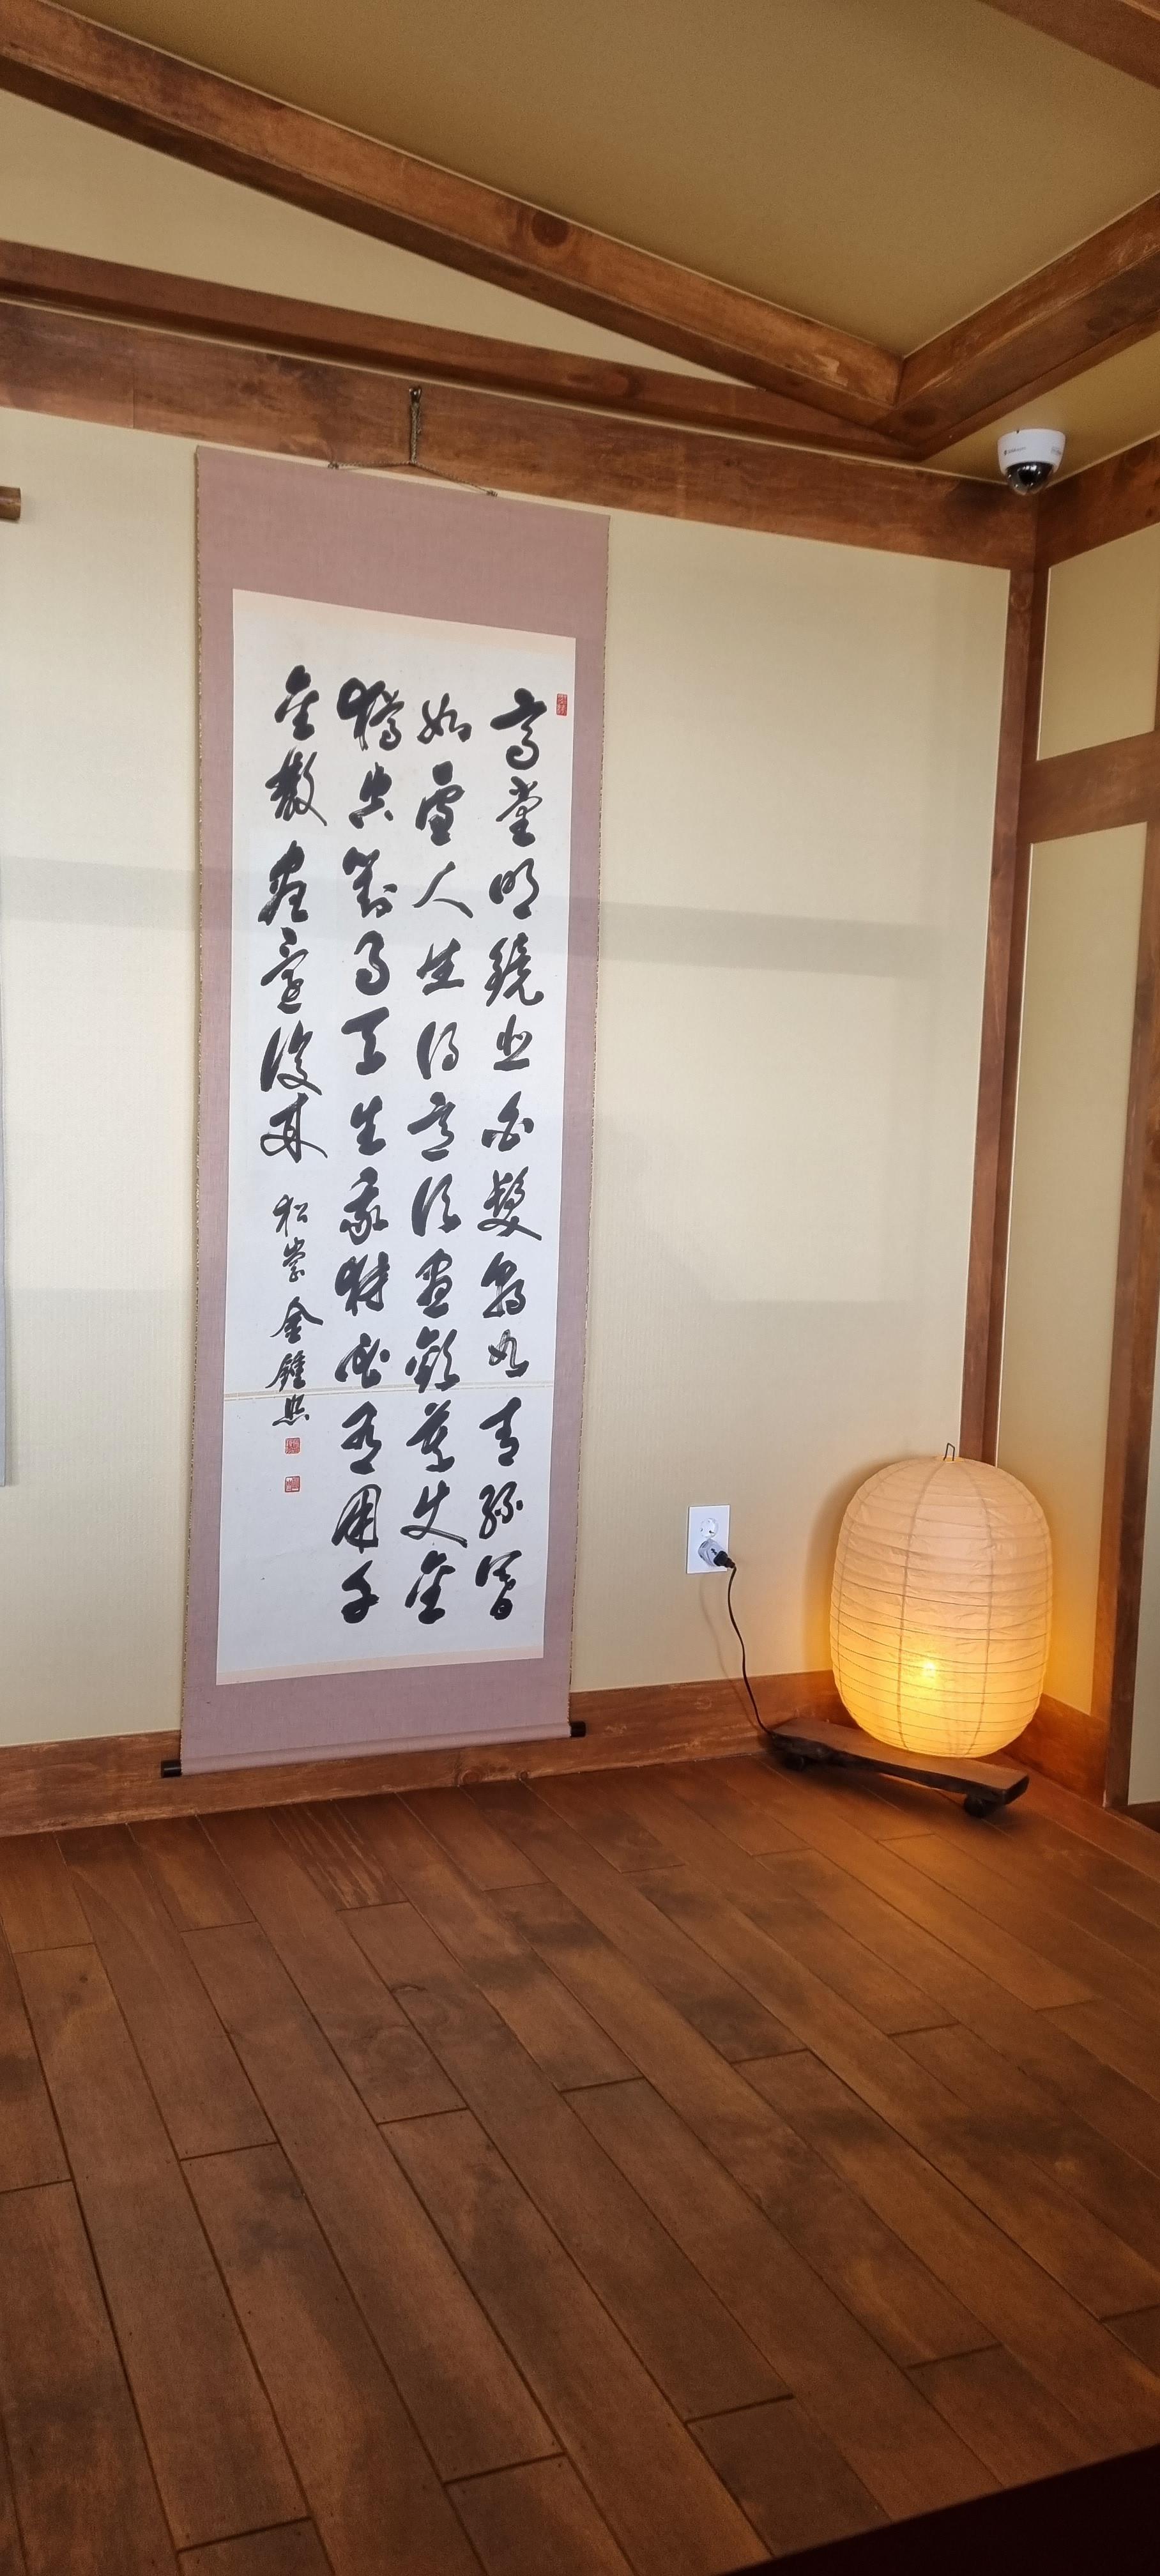 高堂明鏡悲白髮朝如青絲暮
如雪人生得意須盡歡莫使金
樽空對月天生我材必有用千
金散盡還復來 松 金鍾